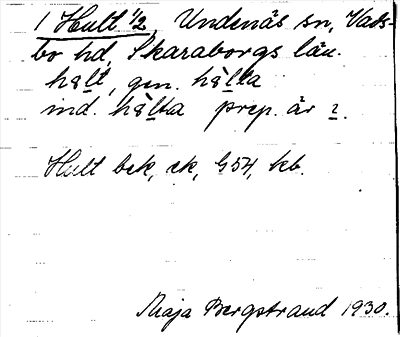 1 Hult ½, Undenäs sn, Vads-
bo hd, Skaraborgs län.
hält, gen. hälta
ind. hälta prep. är 2.
Hult bek, ek, G54, kb.
Maja Bergstrand 1930.